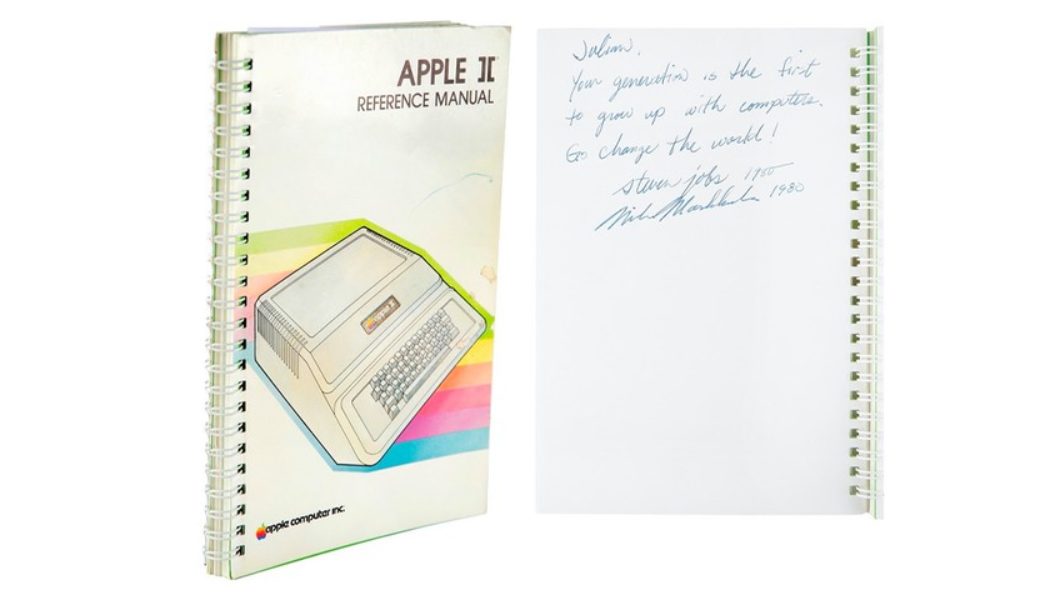 APPLE ][
REFERENCE MANUAL
apple ][
apple computer inc.
Julian,
Your generation is the first
to grow up with computers.
Go change the world!
steven jobs 1980
Mike Markkula 1980